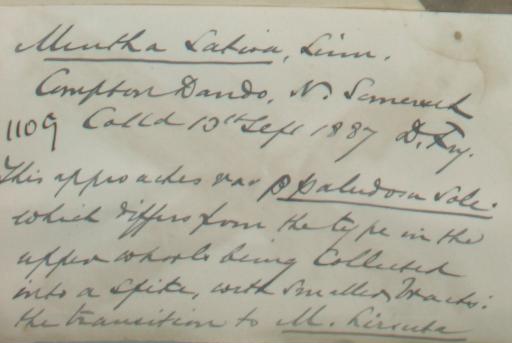 Mentha Sativa, Linn.
Compton Dando, N. Somerset
1109 Coll'd 13th Sept 1887 D. Fry.
This approaches var β paludosa Sole:
which differs from the type in the
upper whorls being Collected
into a Spike, with Smaller bracts:
the transition to M. hirsuta